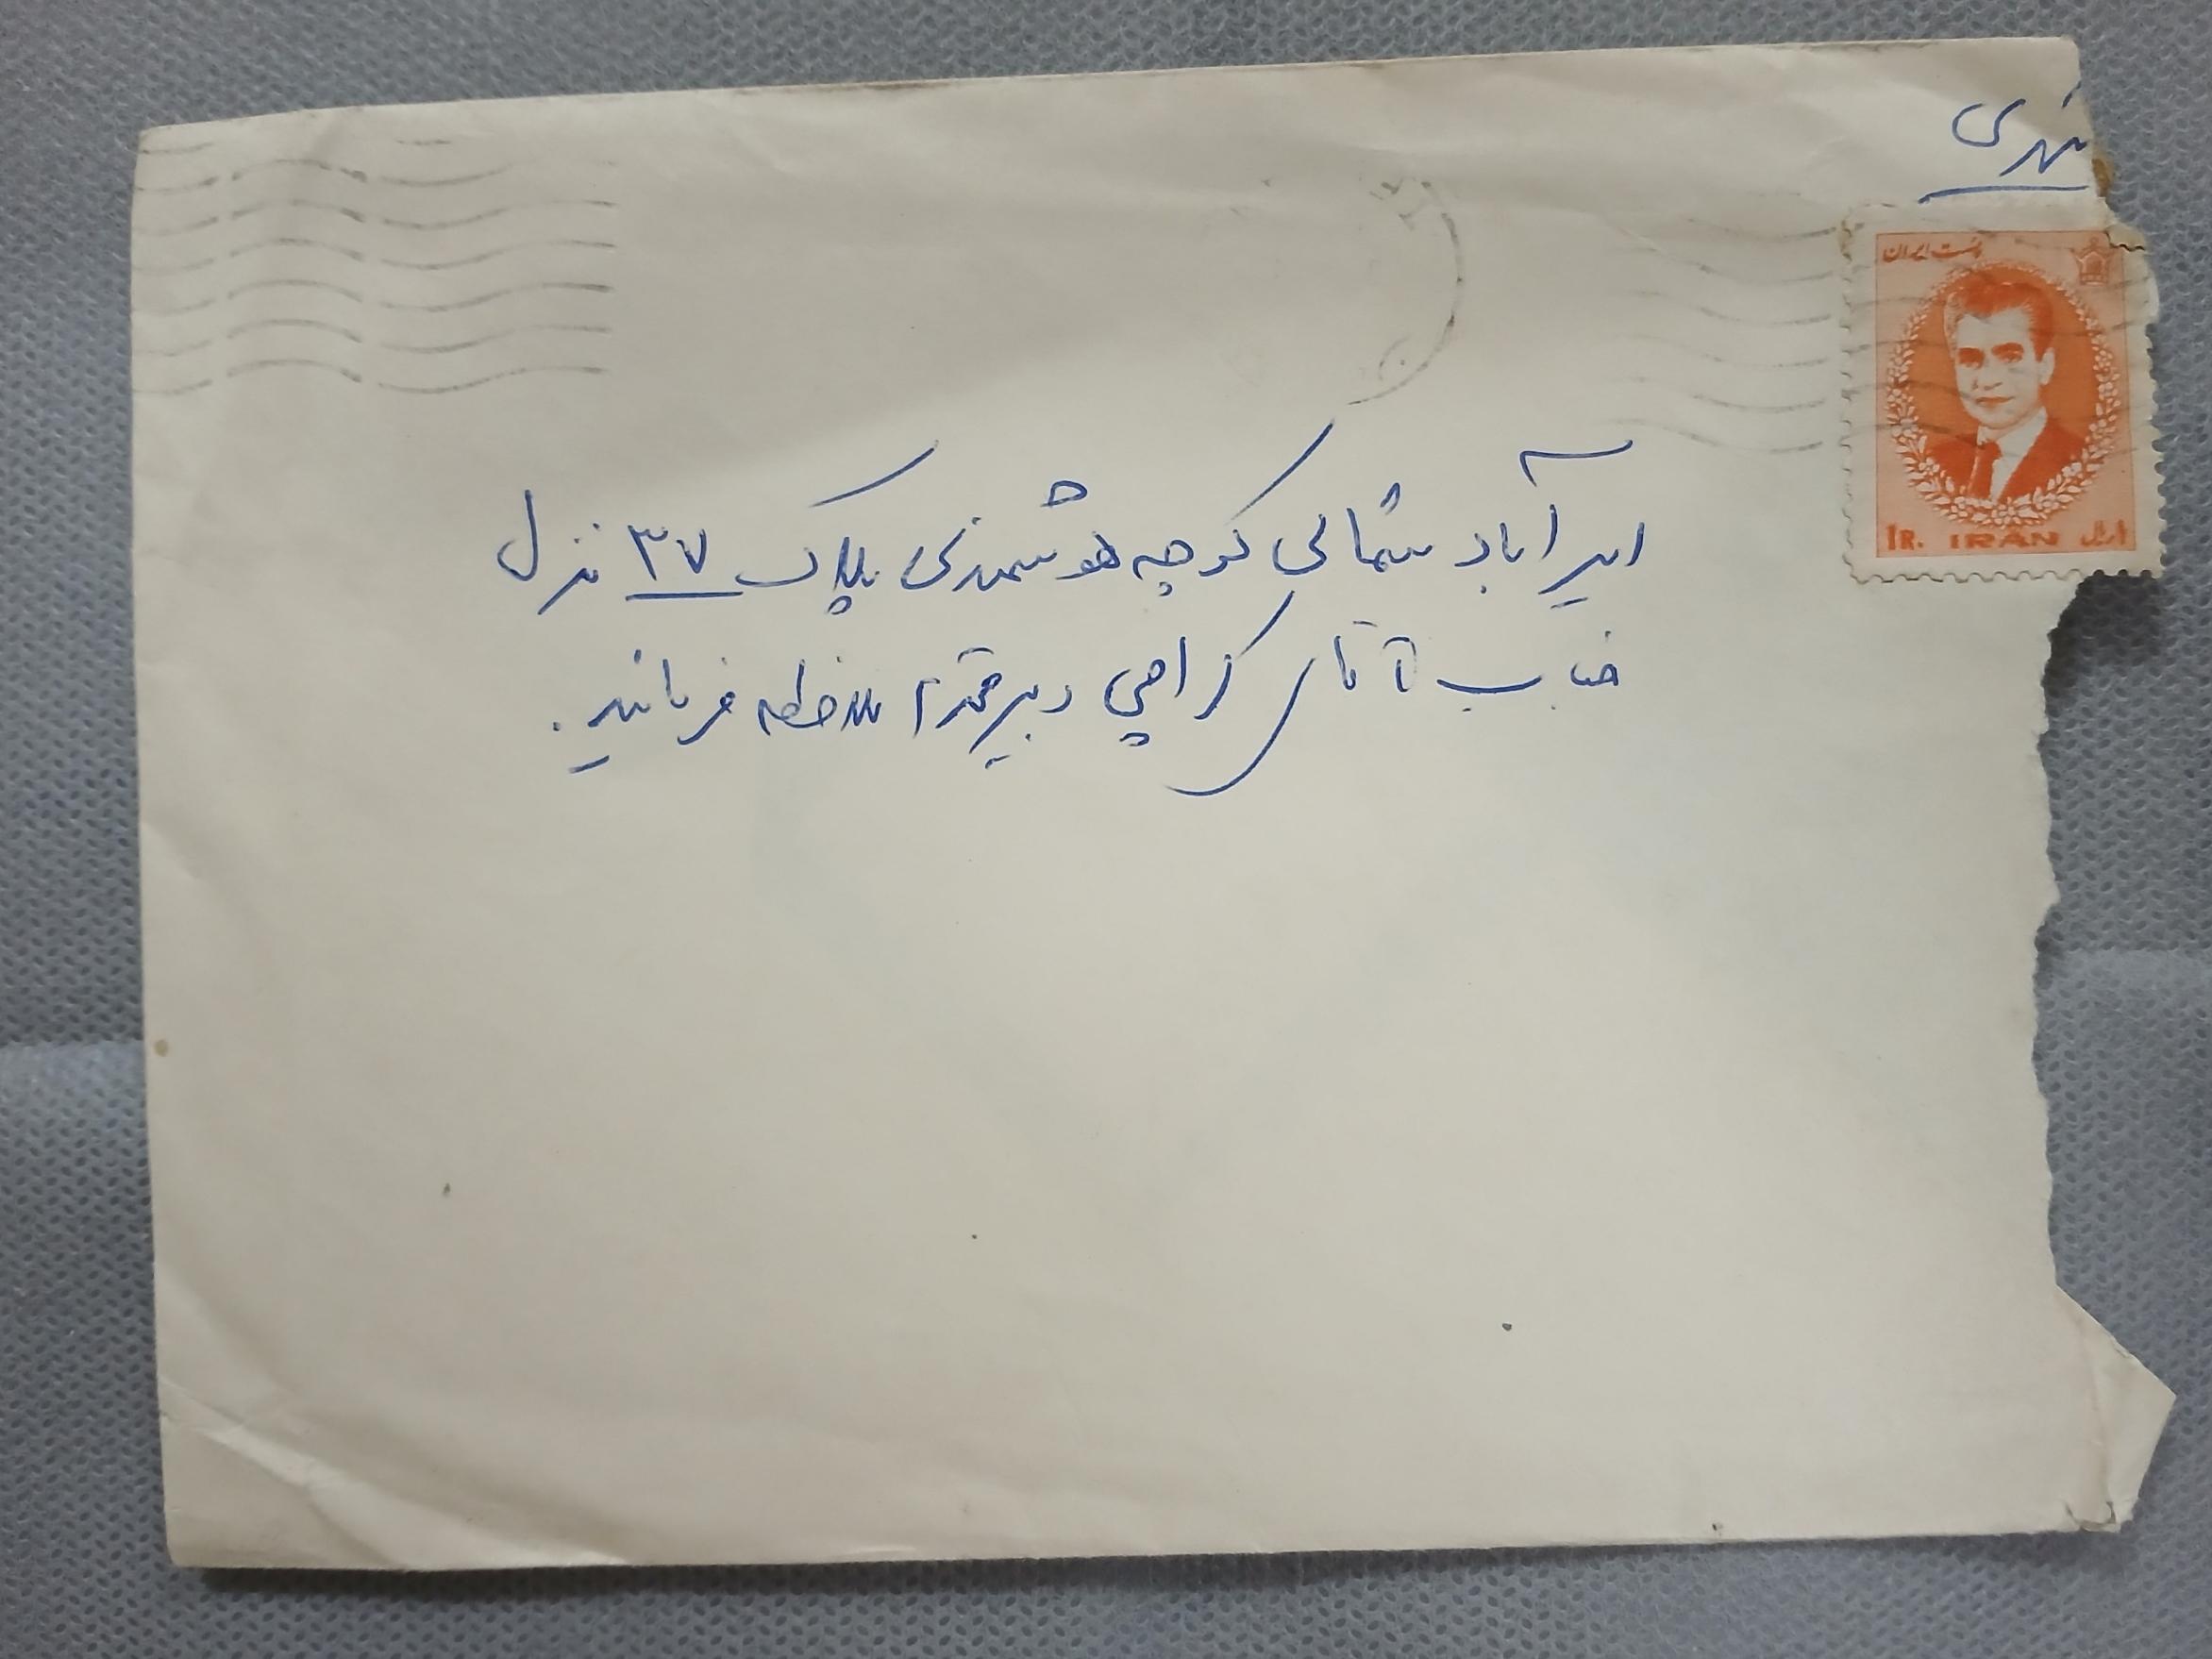 شهری
پست ایران
1R. IRAN ۱ریال
امیرآباد شمالی کوچه هوشمندی پلاک ۳۷ منزل
جناب آقای گرامی دبیر محترم ملاحظه فرمایند.